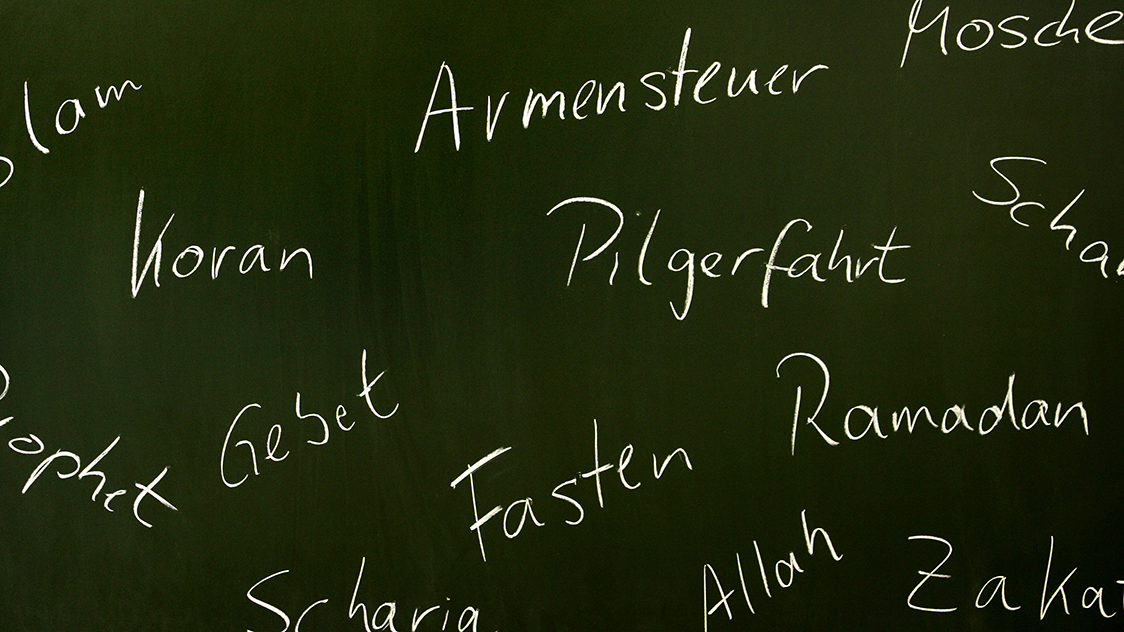 Mosche
Armensteuer
slam
Scha
Koran
Pilgerfahrt
Ramadan
Gebet
Prophet
Fasten
Allah
Zakat
Scharia